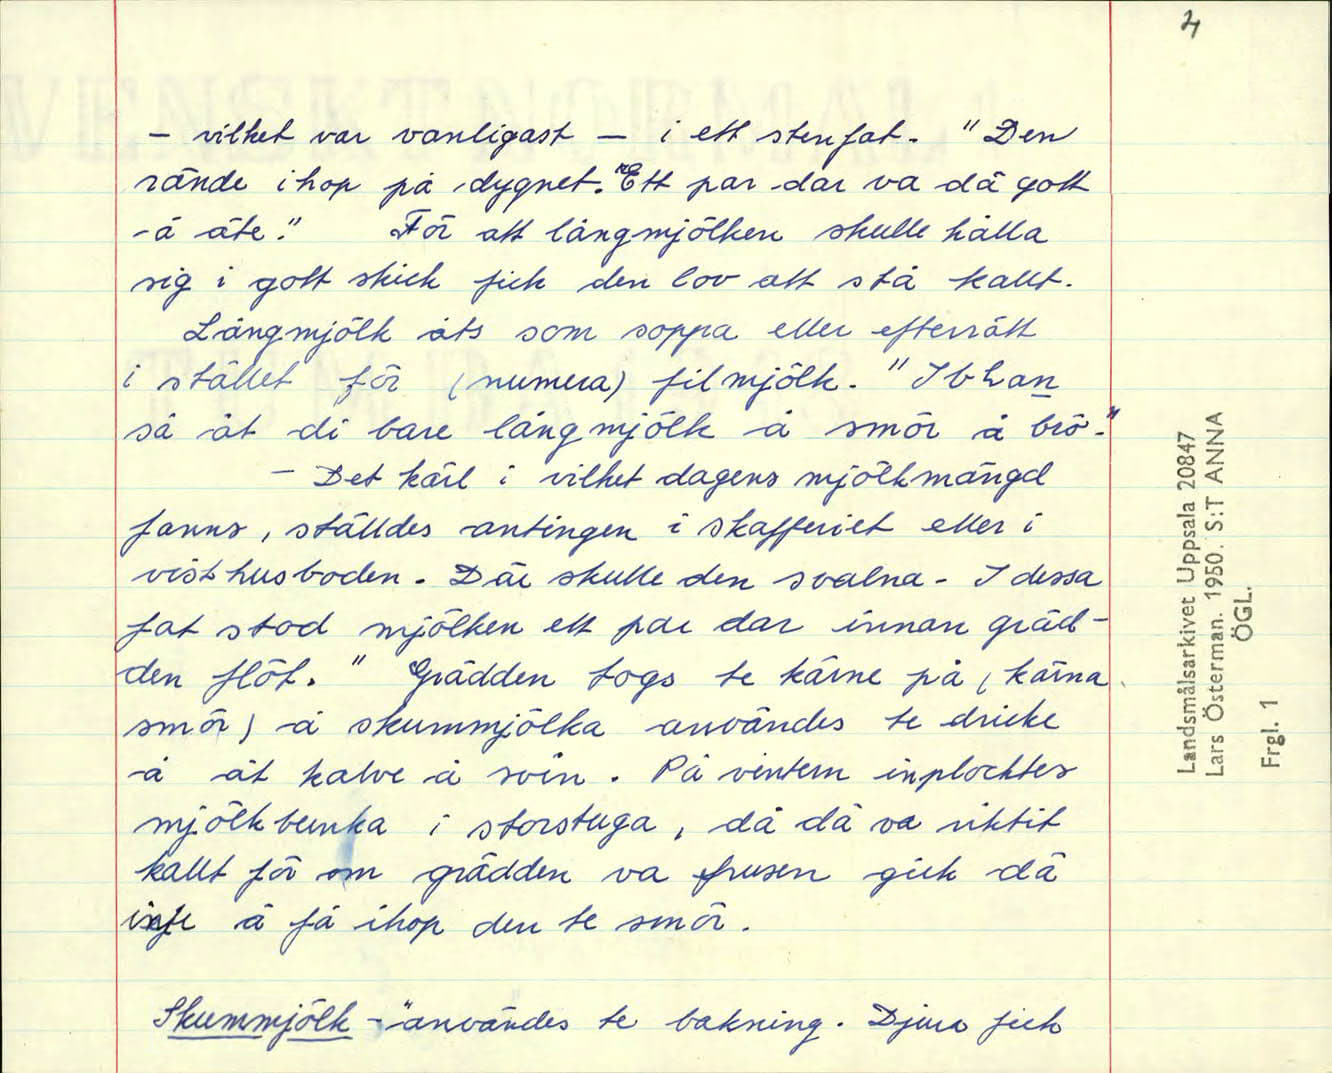 4
- vilket var vanligast - i ett stenfat. "Den
rände ihop på dygnet. "Ett par dar va dä gott
å äte." För att långmjölken skulle hålla
sig i gott skick fick den lov att stå kallt.
Långmjölk åts som soppa eller efterrätt
i stället för (numera) filmjölk. "Ibhan
så åt di bare långmjölk å smör å brö."
- Det kärl i vilket dagens mjölkmängd
fanns, ställdes antingen i skafferiet eller i
visthusboden. Där skulle den svalna. I dessa
fat stod mjölken ett par dar innan gräd-
den flöt. " Grädden togs te kärne på (kärna
smör) å skummjölka användes te dricke
å åt kalve å svin. På vintern inplocktes
mjölkbunka i storstuga, då dä va riktit
kallt för om grädden va frusen gick dä
inte å få ihop den te smör.
Skummjölk - "användes te bakning. Djura fick
Landsmålsarkivet Uppsala 20847
Lars Österman. 1950. S:T ANNA
ÖGL.
Frgl. 1